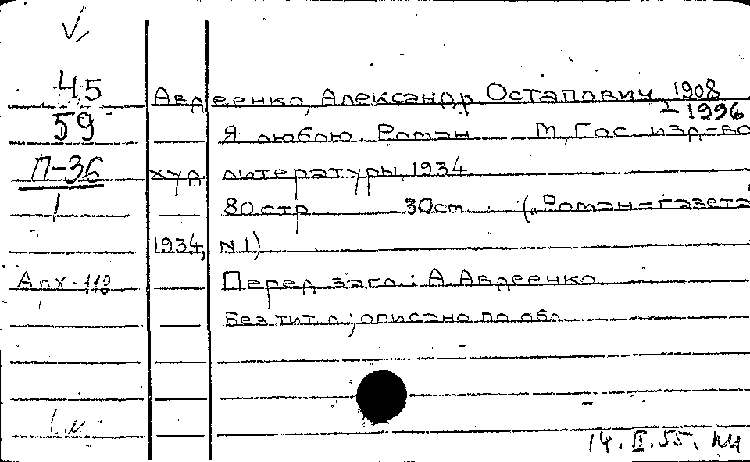 45
59
П-36
1
Арх-113
Авдеенко, Александр Остапович 1908
1996
Я люблю. Роман М, Гос. изд-во
худ. литературы, 1934
80 стр. 30 см. („Роман-газета
1934, N1)
Перед загл.: А. Авдеенко
Без тит л; описано по обл.
14.II.55.